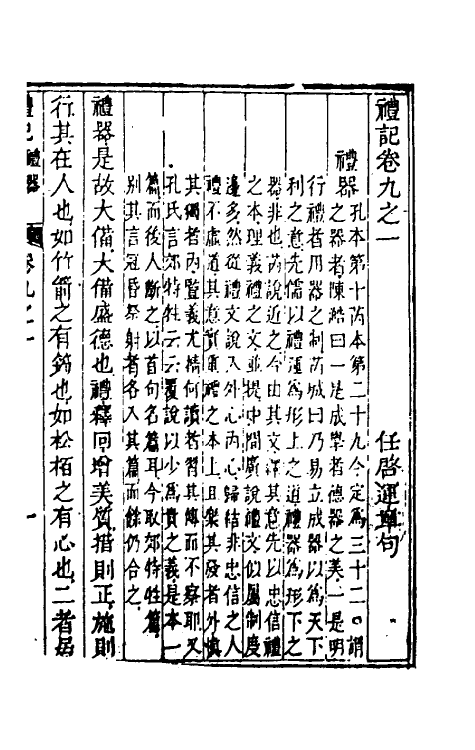 禮記卷九之一
任啓運章句
禮器孔本第十芮本第二十九今定爲三十二○謂
之器者陳澔曰一是成學者德器之美一是明
行禮者用器之制芮城曰乃易立成器以爲天下
利之意先儒以禮運爲形上之道禮器爲形下之
器非也芮說近之今由其文譯其意先以忠信禮
之本理義禮之文並提中間廣說禮文似屬制度
邊多然從禮文說入外心內心歸結非忠信之人
禮不虛道其意實重禮之本上且樂其發者外慎
其獨者內豎義尤精何讀者習其傳而不察耶又
孔氏言郊特牲云云覆說以少爲貴之義是本一
篇而後人斷之以首句名篇耳今取郊特牲篇
別其言冠昏祭射者各入其篇而餘仍合之
禮器是故大備大備盛德也禮釋回增美質措則正施則
行其在人也如竹箭之有筠也如松栢之有心也二者居
禮記 禮器 卷九之一 一